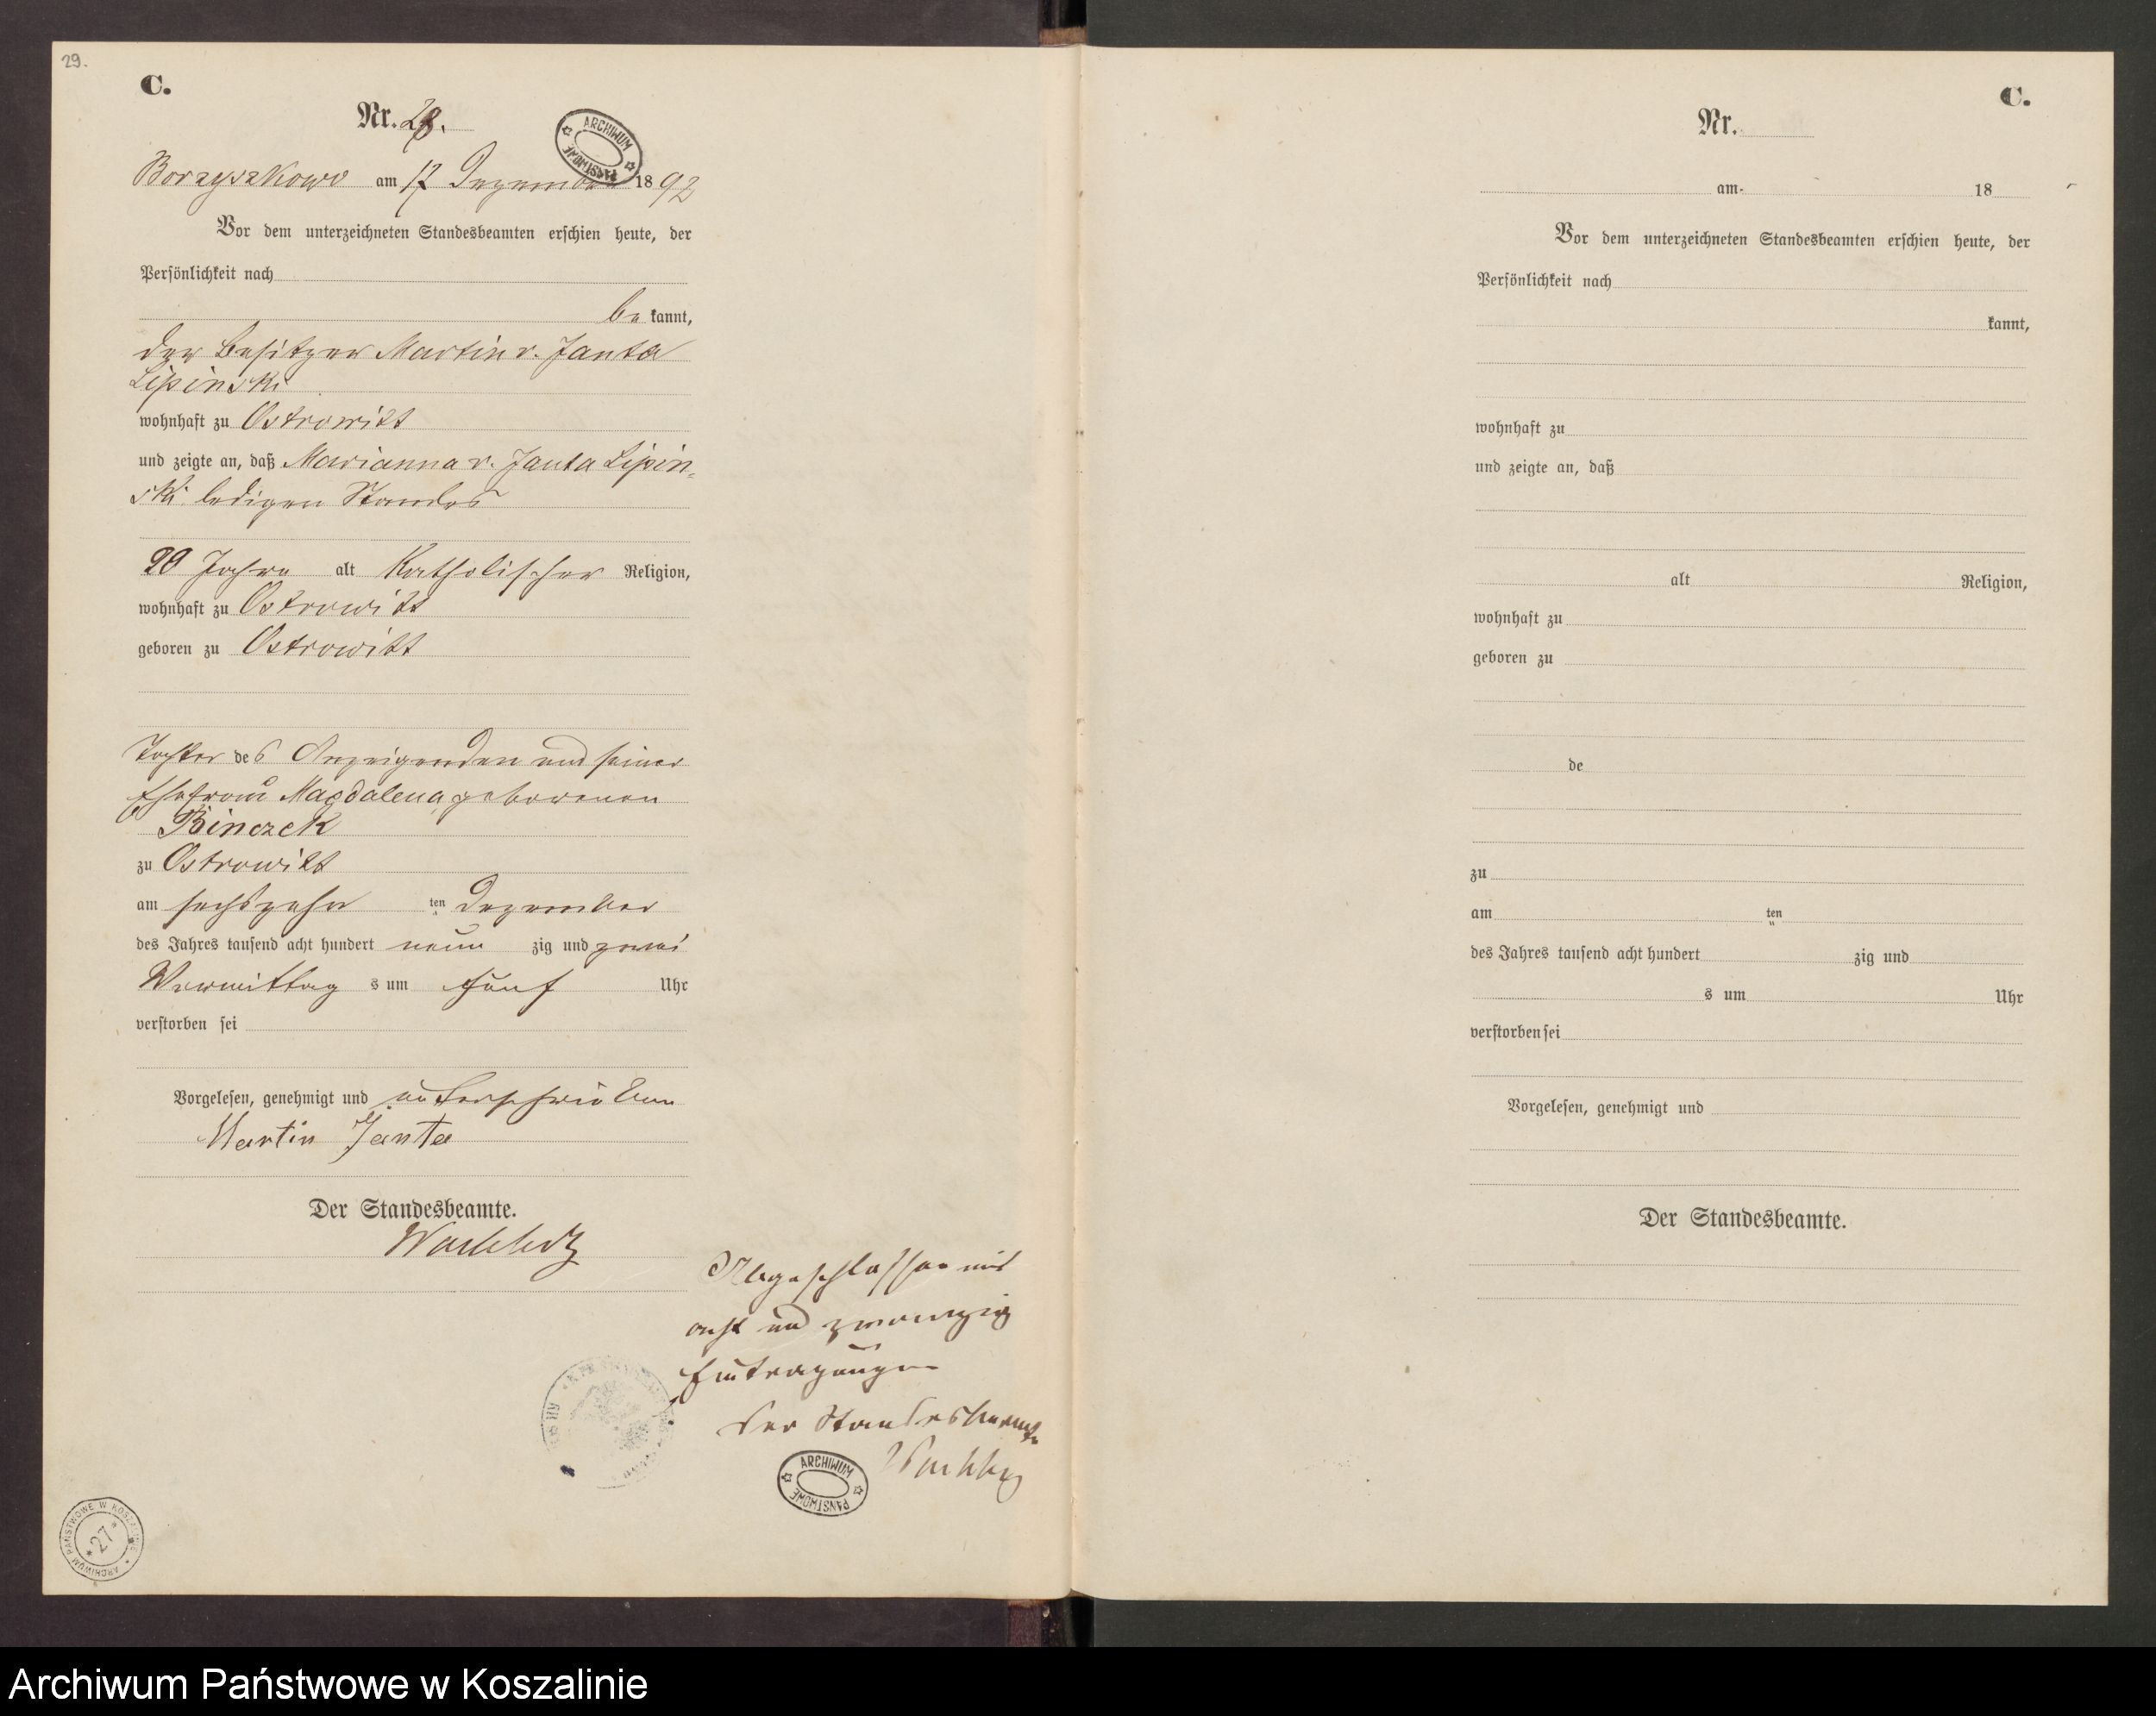 29.
C.
Nr. 28.
ARCHIWUM PAŃSTWOWE
Borzyszkowo am 17 Dezember 1892
Vor dem unterzeichneten Standesbeamten erschien heute, der
Persönlichkeit nach
be kannt,
der Besitzer Martin v. Janta
Lipinski
wohnhaft zu Ostrowitt
und zeigte an, daß Marianna v. Janta Lipin-
ski ledigen Standes
20 Jahre alt Katholischer Religion,
wohnhaft zu Ostrowitt
geboren zu Ostrowitt
Tochter des Anzeigenden und seiner
Ehefrau Magdalena geborenen
Binczek
zu Ostrowitt
am sechszehn ten Dezember
des Jahres tausend acht hundert neun zig und zwei
Vormittag s um fünf Uhr
verstorben sei
Vorgelesen, genehmigt und unterschrieben
Martin Janta
Der Standesbeamte.
Wachholz
Abgeschlossen mit
acht und zwanzig
Eintragungen
Der Standesbeamte
Wachholz
ARCHIWUM PAŃSTWOWE
ARCHIWUM PAŃSTWOWE W KOSZALINIE
27
C.
Nr.
am 18
Vor dem unterzeichneten Standesbeamten erschien heute, der
Persönlichkeit nach
kannt,
wohnhaft zu
und zeigte an, daß
alt Religion,
wohnhaft zu
geboren zu
de
zu
am ten
des Jahres tausend acht hundert zig und
s um Uhr
verstorben sei
Vorgelesen, genehmigt und
Der Standesbeamte.
Archiwum Państwowe w Koszalinie